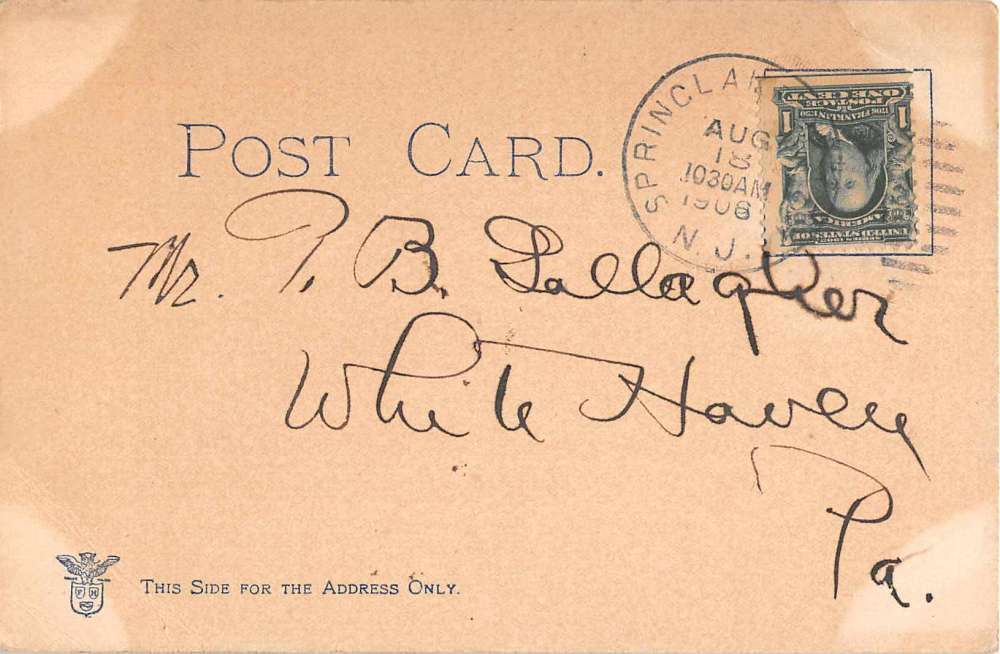 POST CARD.
SPRING LAKE
AUG
18
1030AM
1906
N. J.
SERIES 1902
UNITED STATES OF
AMERICA
1 1
POSTAGE
ONE CENT
Mr. P. B. Gallagher
White Haven
Pa.
F H
THIS SIDE FOR THE ADDRESS ONLY.